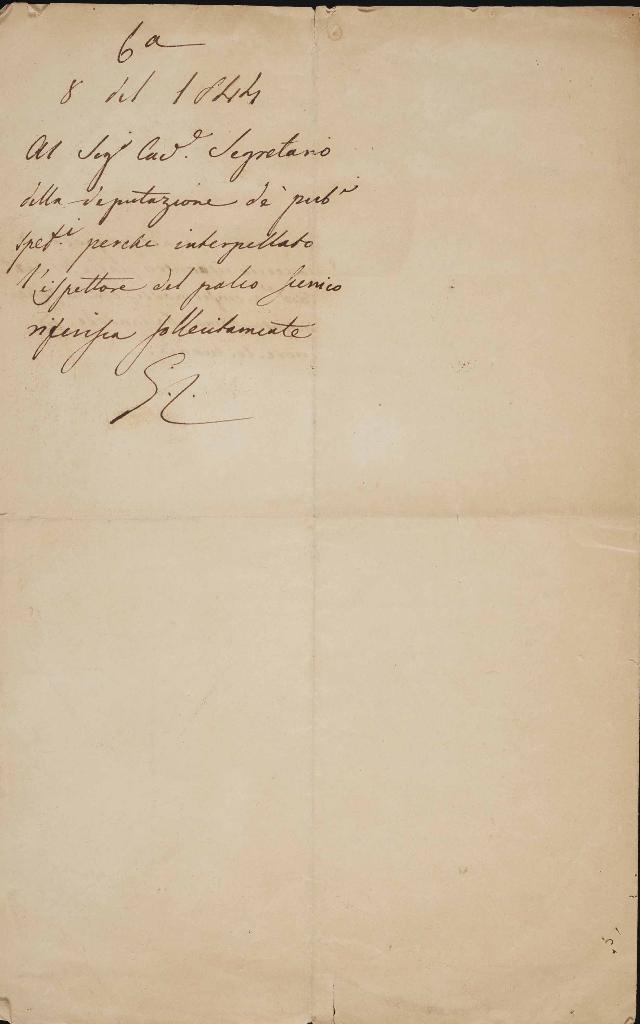 6a
8 del 1844
Al Sigr Cave. Segretario
della deputazione de' pubi
spet.i perche interpellato
l'ispettore del palco scenico
riferisca sollecitamente